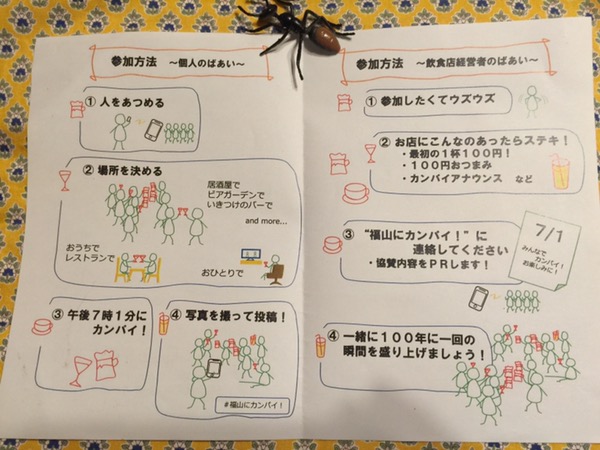 参加方法 ～個人のばあい～
① 人をあつめる
② 場所を決める
居酒屋で
ビアガーデンで
いきつけのバーで
and more...
おうちで
レストランで
おひとりで
③ 午後７時１分に
カンパイ！
④ 写真を撮って投稿！
#福山にカンパイ！
参加方法 ～飲食店経営者のばあい～
① 参加したくてウズウズ
② お店にこんなのあったらステキ！
・最初の１杯１００円！
・１００円おつまみ
・カンパイアナウンス など
③ “福山にカンパイ！”に
連絡してください
・協賛内容をＰＲします！
7/1
みんなで
カンパイ！
お楽しみに！
④ 一緒に１００年に一回の
瞬間を盛り上げましょう！